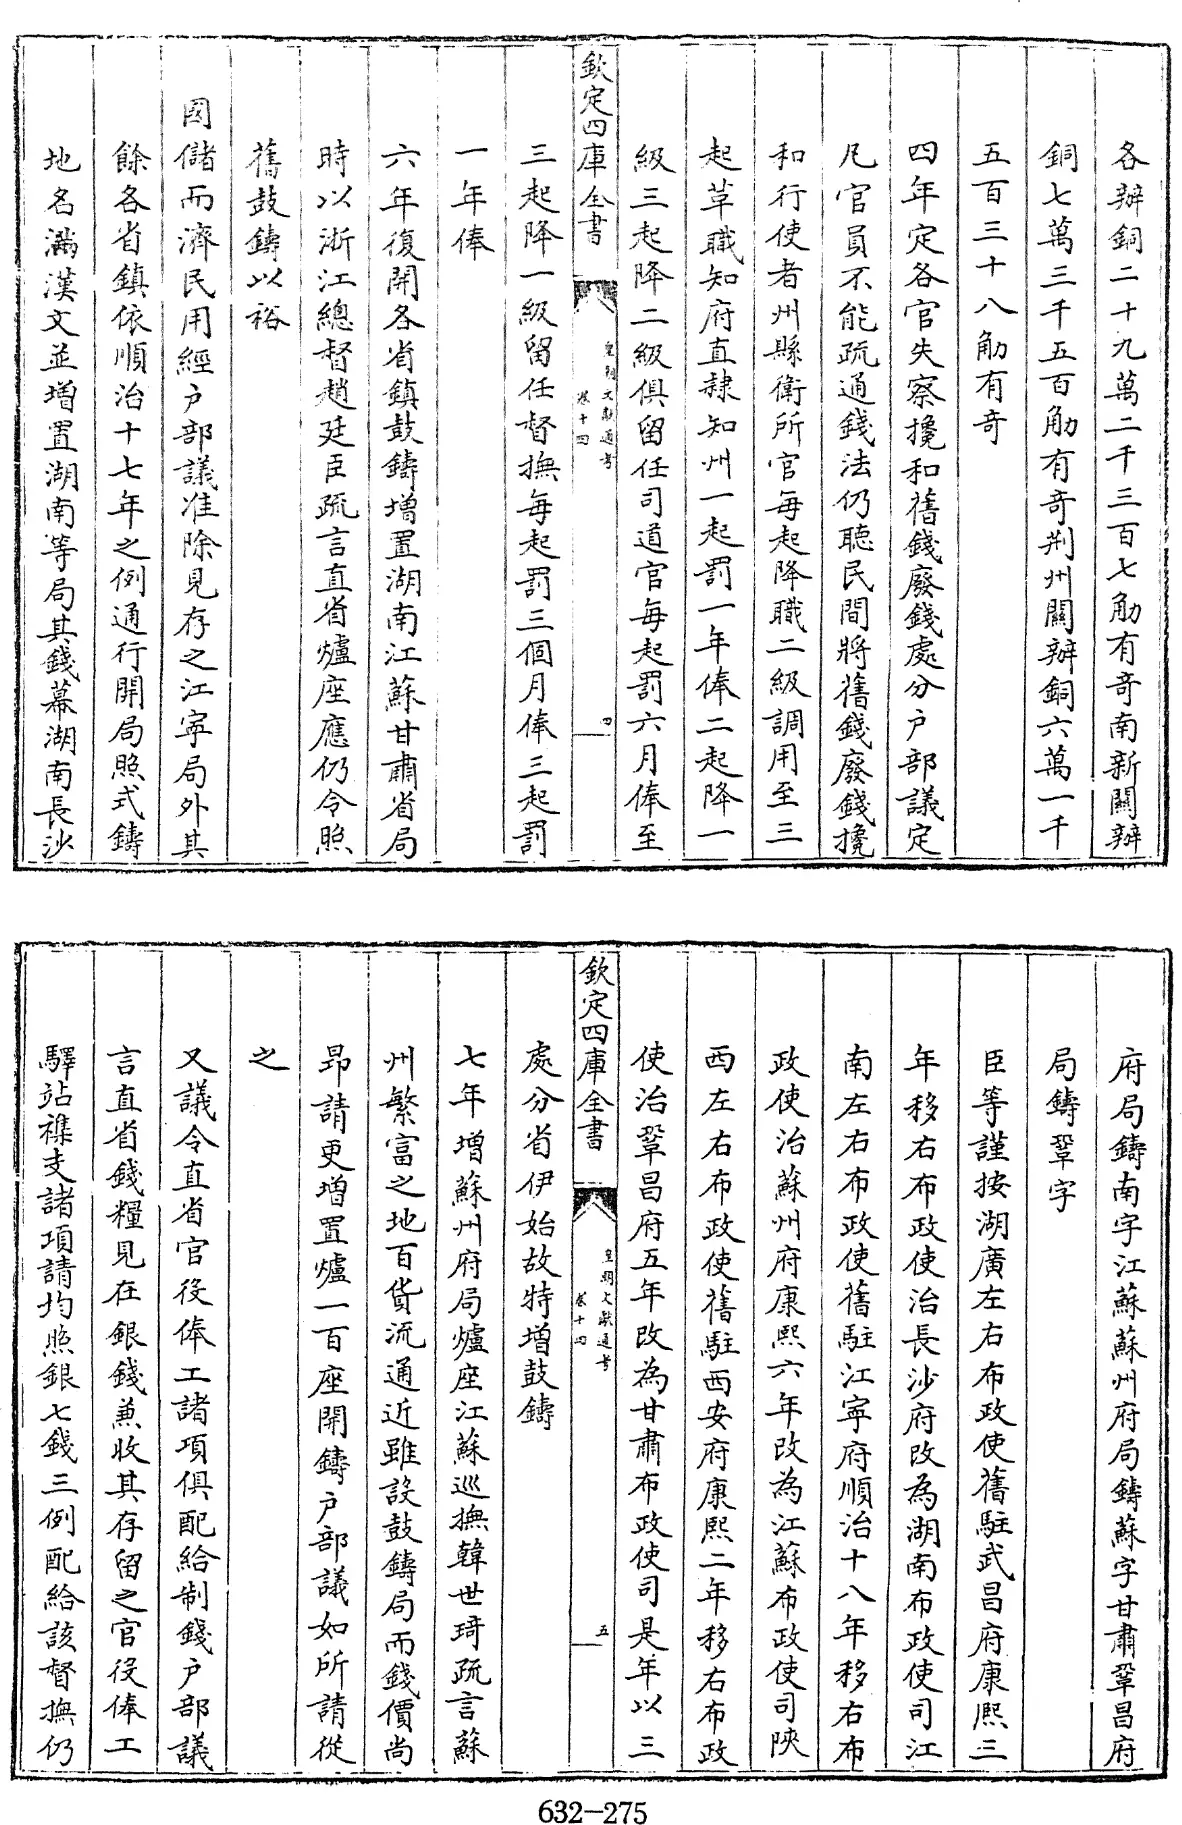 各辦銅二十九萬二千三百七觔有奇南新關辦
銅七萬三千五百觔有奇荆州關辦銅六萬一千
五百三十八觔有奇
四年定各官失察攙和舊錢廢錢處分户部議定
凡官員不能疏通錢法仍聽民間將舊錢廢錢攙
和行使者州縣衛所官每起降職二級調用至三
起草職知府直隷知州一起罰一年俸二起降一
級三起降二級俱留任司道官每起罰六月俸至
欽定四庫全書
皇朝文獻通考
卷十四
四
三起降一級留任督撫每起罰三個月俸三起罰
一年俸
六年復開各省鎮鼓鑄增置湖南江蘇甘肅省局
時以浙江總督趙廷臣疏言直省爐座應仍令照
舊鼓鑄以裕
國儲而濟民用經户部議准除見存之江寧局外其
餘各省鎮依順治十七年之例通行開局照式鑄
地名滿漢文並增置湖南等局其錢幕湖南長沙
府局鑄南字江蘇蘇州府局鑄蘇字甘肅鞏昌府
局鑄鞏字
臣等謹按湖廣左右布政使舊駐武昌府康熙三
年移右布政使治長沙府改為湖南布政使司江
南左右布政使舊駐江寧府順治十八年移右布
政使治蘇州府康熙六年改為江蘇布政使司陜
西左右布政使舊駐西安府康熙二年移右布政
使治鞏昌府五年改為甘肅布政使司是年以三
欽定四庫全書
皇朝文獻通考
卷十四
五
處分省伊始故特增鼓鑄
七年增蘇州府局爐座江蘇巡撫韓世琦疏言蘇
州繁富之地百貨流通近雖設鼓鑄局而錢價尚
昂請更增置爐一百座開鑄户部議如所請從
之
又議令直省官役俸工諸項俱配給制錢户部議
言直省錢糧見在銀錢兼收其存留之官役俸工
驛站襍支諸項請均照銀七錢三例配給該督撫仍
632-275